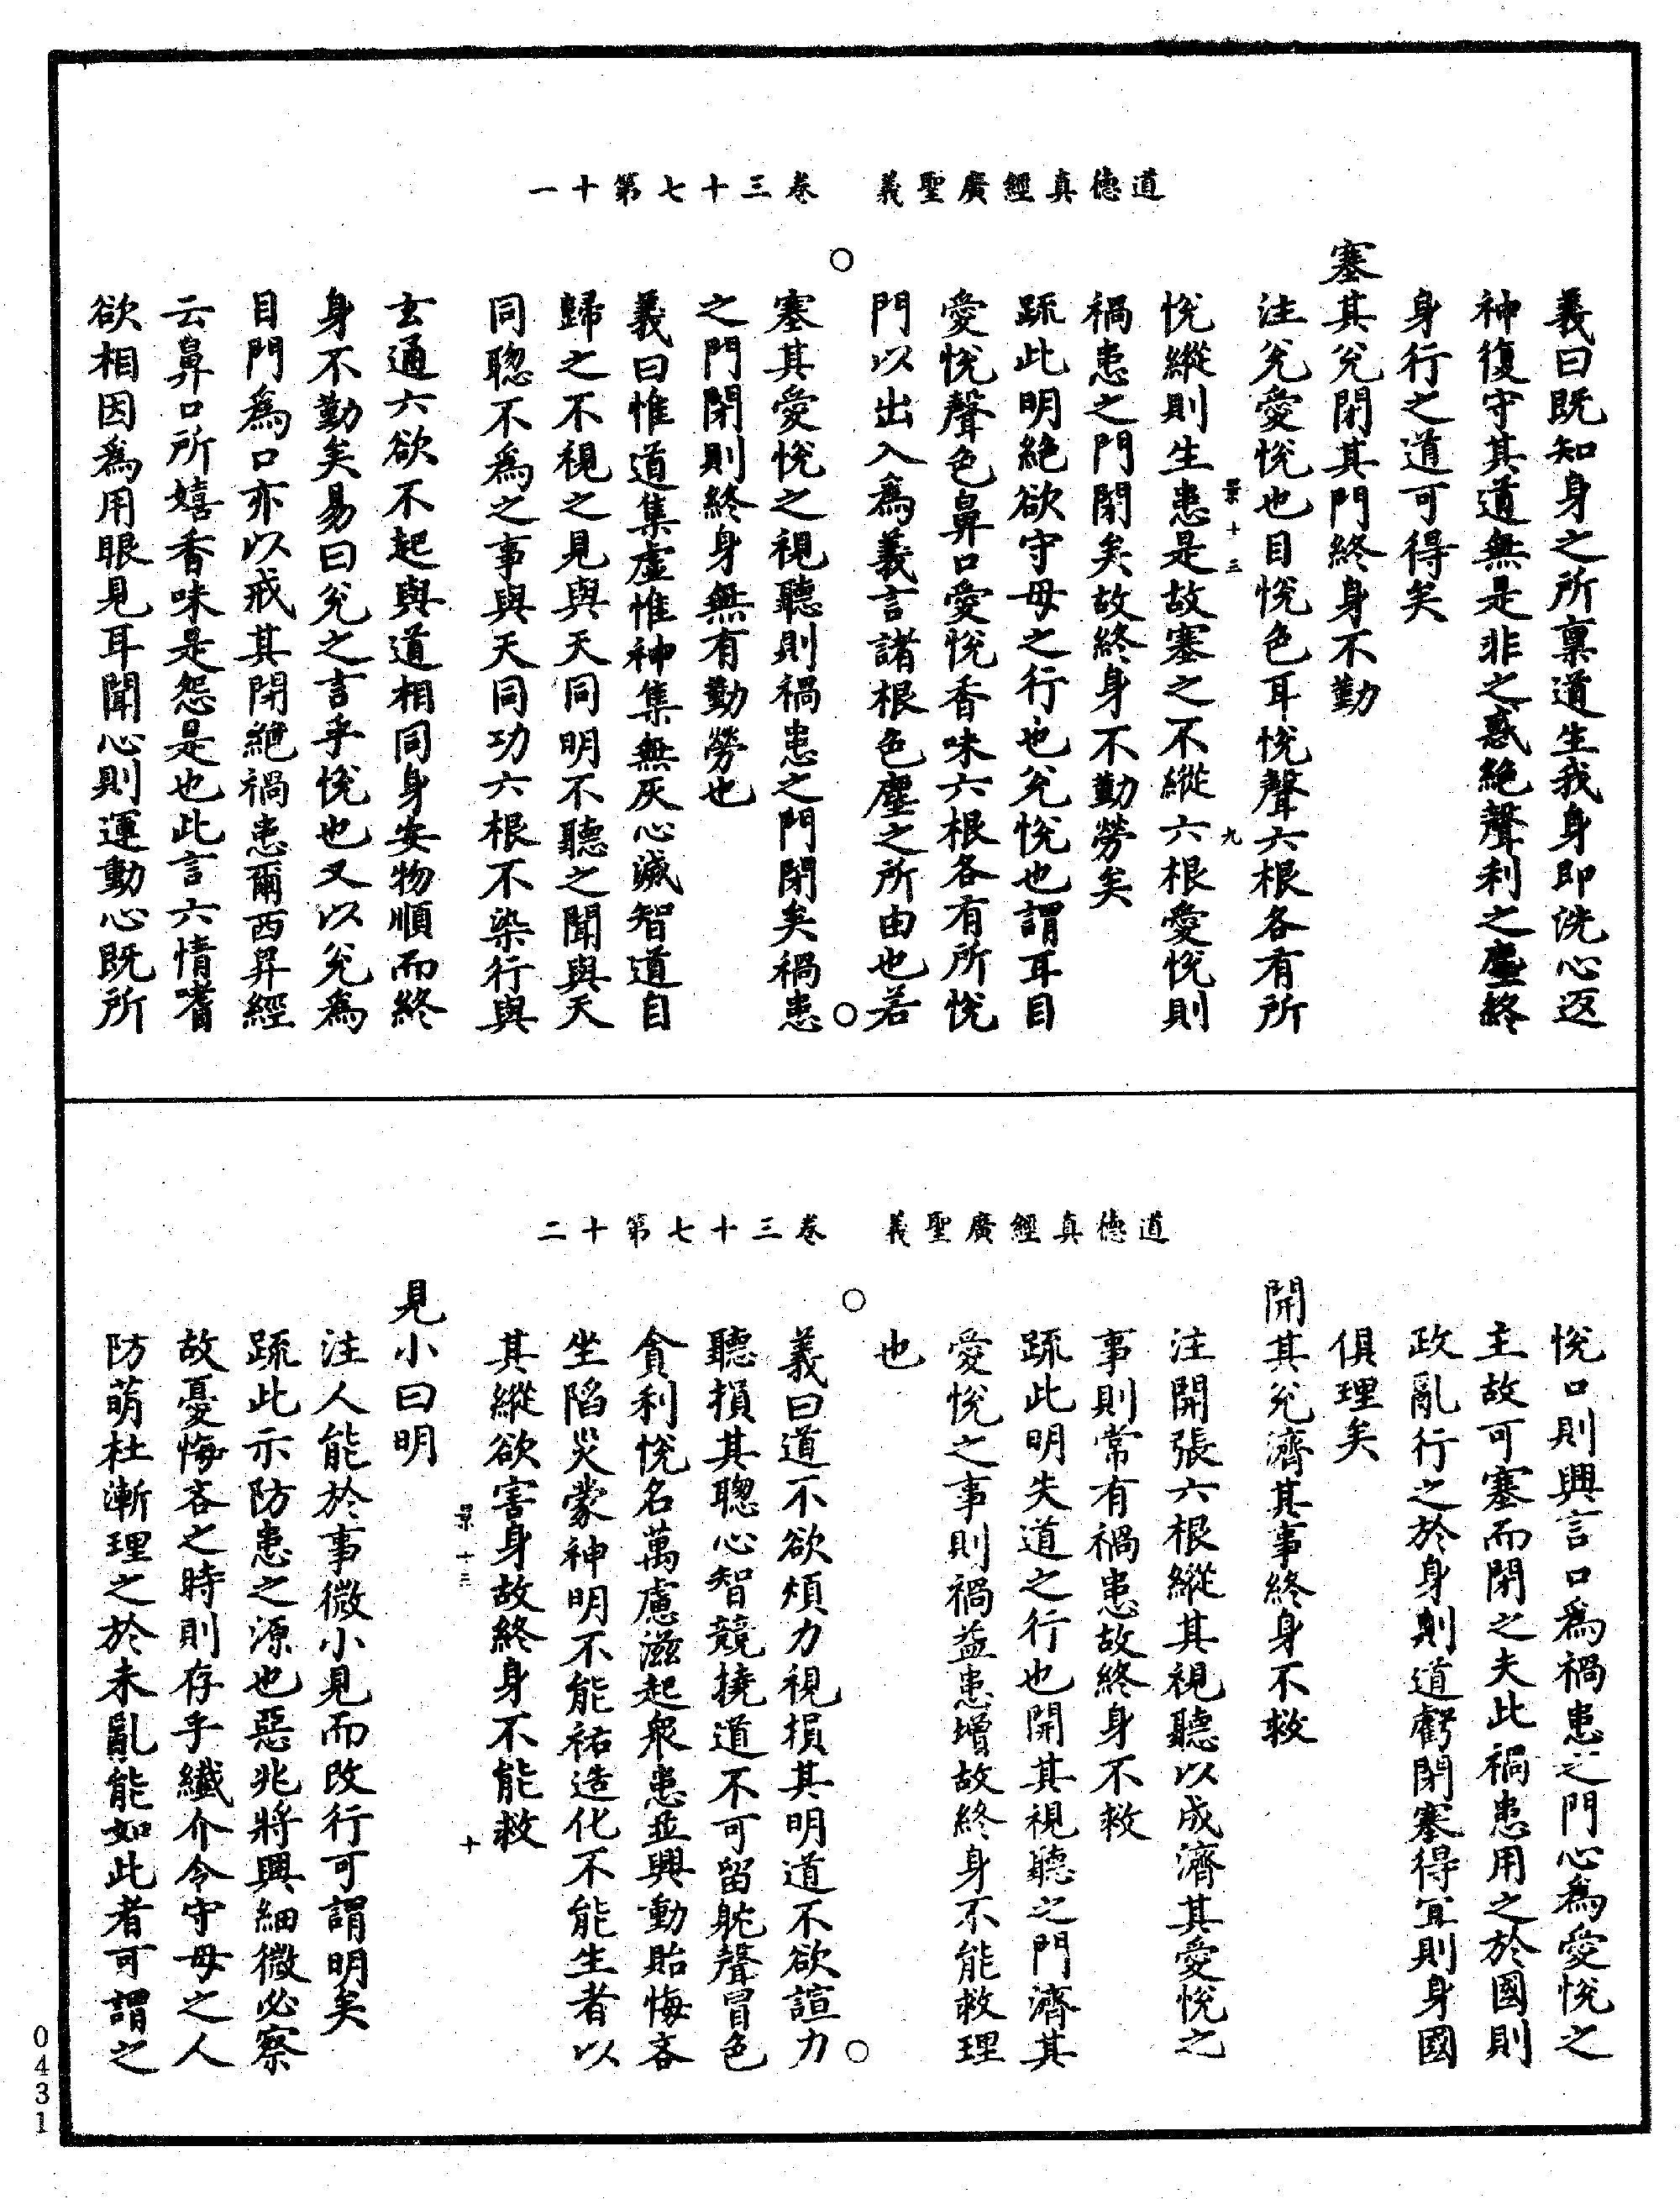 道德真經廣聖義　卷三十七第十一
義曰既知身之所稟道生我身即洗心返
神復守其道無是非之惑絕聲利之塵終
身行之道可得矣
塞其兌閉其門終身不勤
注兌愛悅也目悅色耳悅聲六根各有所
景十三　九
悅縱則生患是故塞之不縱六根愛悅則
禍患之門閉矣故終身不勤勞矣
䟽此明絕欲守母之行也兌悅也謂耳目
愛悅聲色鼻口愛悅香味六根各有所悅
門以出入為義言諸根色塵之所由也若
塞其愛悅之視聽則禍患之門閉矣禍患
之門閉則終身無有勤勞也
義曰惟道集虛惟神集無灰心滅智道自
歸之不視之見與天同明不聽之聞與天
同聦不為之事與天同功六根不染行與
玄通六欲不起與道相同身安物順而終
身不勤矣易曰兌之言乎悅也又以兌為
目門為口亦以戒其閉絕禍患爾西昇經
云鼻口所嬉香味是怨是也此言六情嗜
欲相因為用眼見耳聞心則運動心既所
道德真經廣聖義　卷三十七第十二
悅口則興言口為禍患之門心為愛悅之
主故可塞而閉之夫此禍患用之於國則
政亂行之於身則道虧閉塞得冝則身國
俱理矣
開其兌濟其事終身不救
注開張六根縱其視聽以成濟其愛悅之
事則常有禍患故終身不救
䟽此明失道之行也開其視聽之門濟其
愛悅之事則禍益患增故終身不能救理
也
義曰道不欲煩力視損其明道不欲諠力
聽損其聦心智競撓道不可留躭聲冒色
貪利悅名萬慮滋起衆患並興動貽悔吝
坐陷災蒙神明不能祐造化不能生者以
其縱欲害身故終身不能救
景十三　十
見小曰明
注人能於事微小見而改行可謂明矣
䟽此示防患之源也惡兆將興細微必察
故憂悔吝之時則存乎纖介令守母之人
防萌杜漸理之於未亂能如此者可謂之
0431